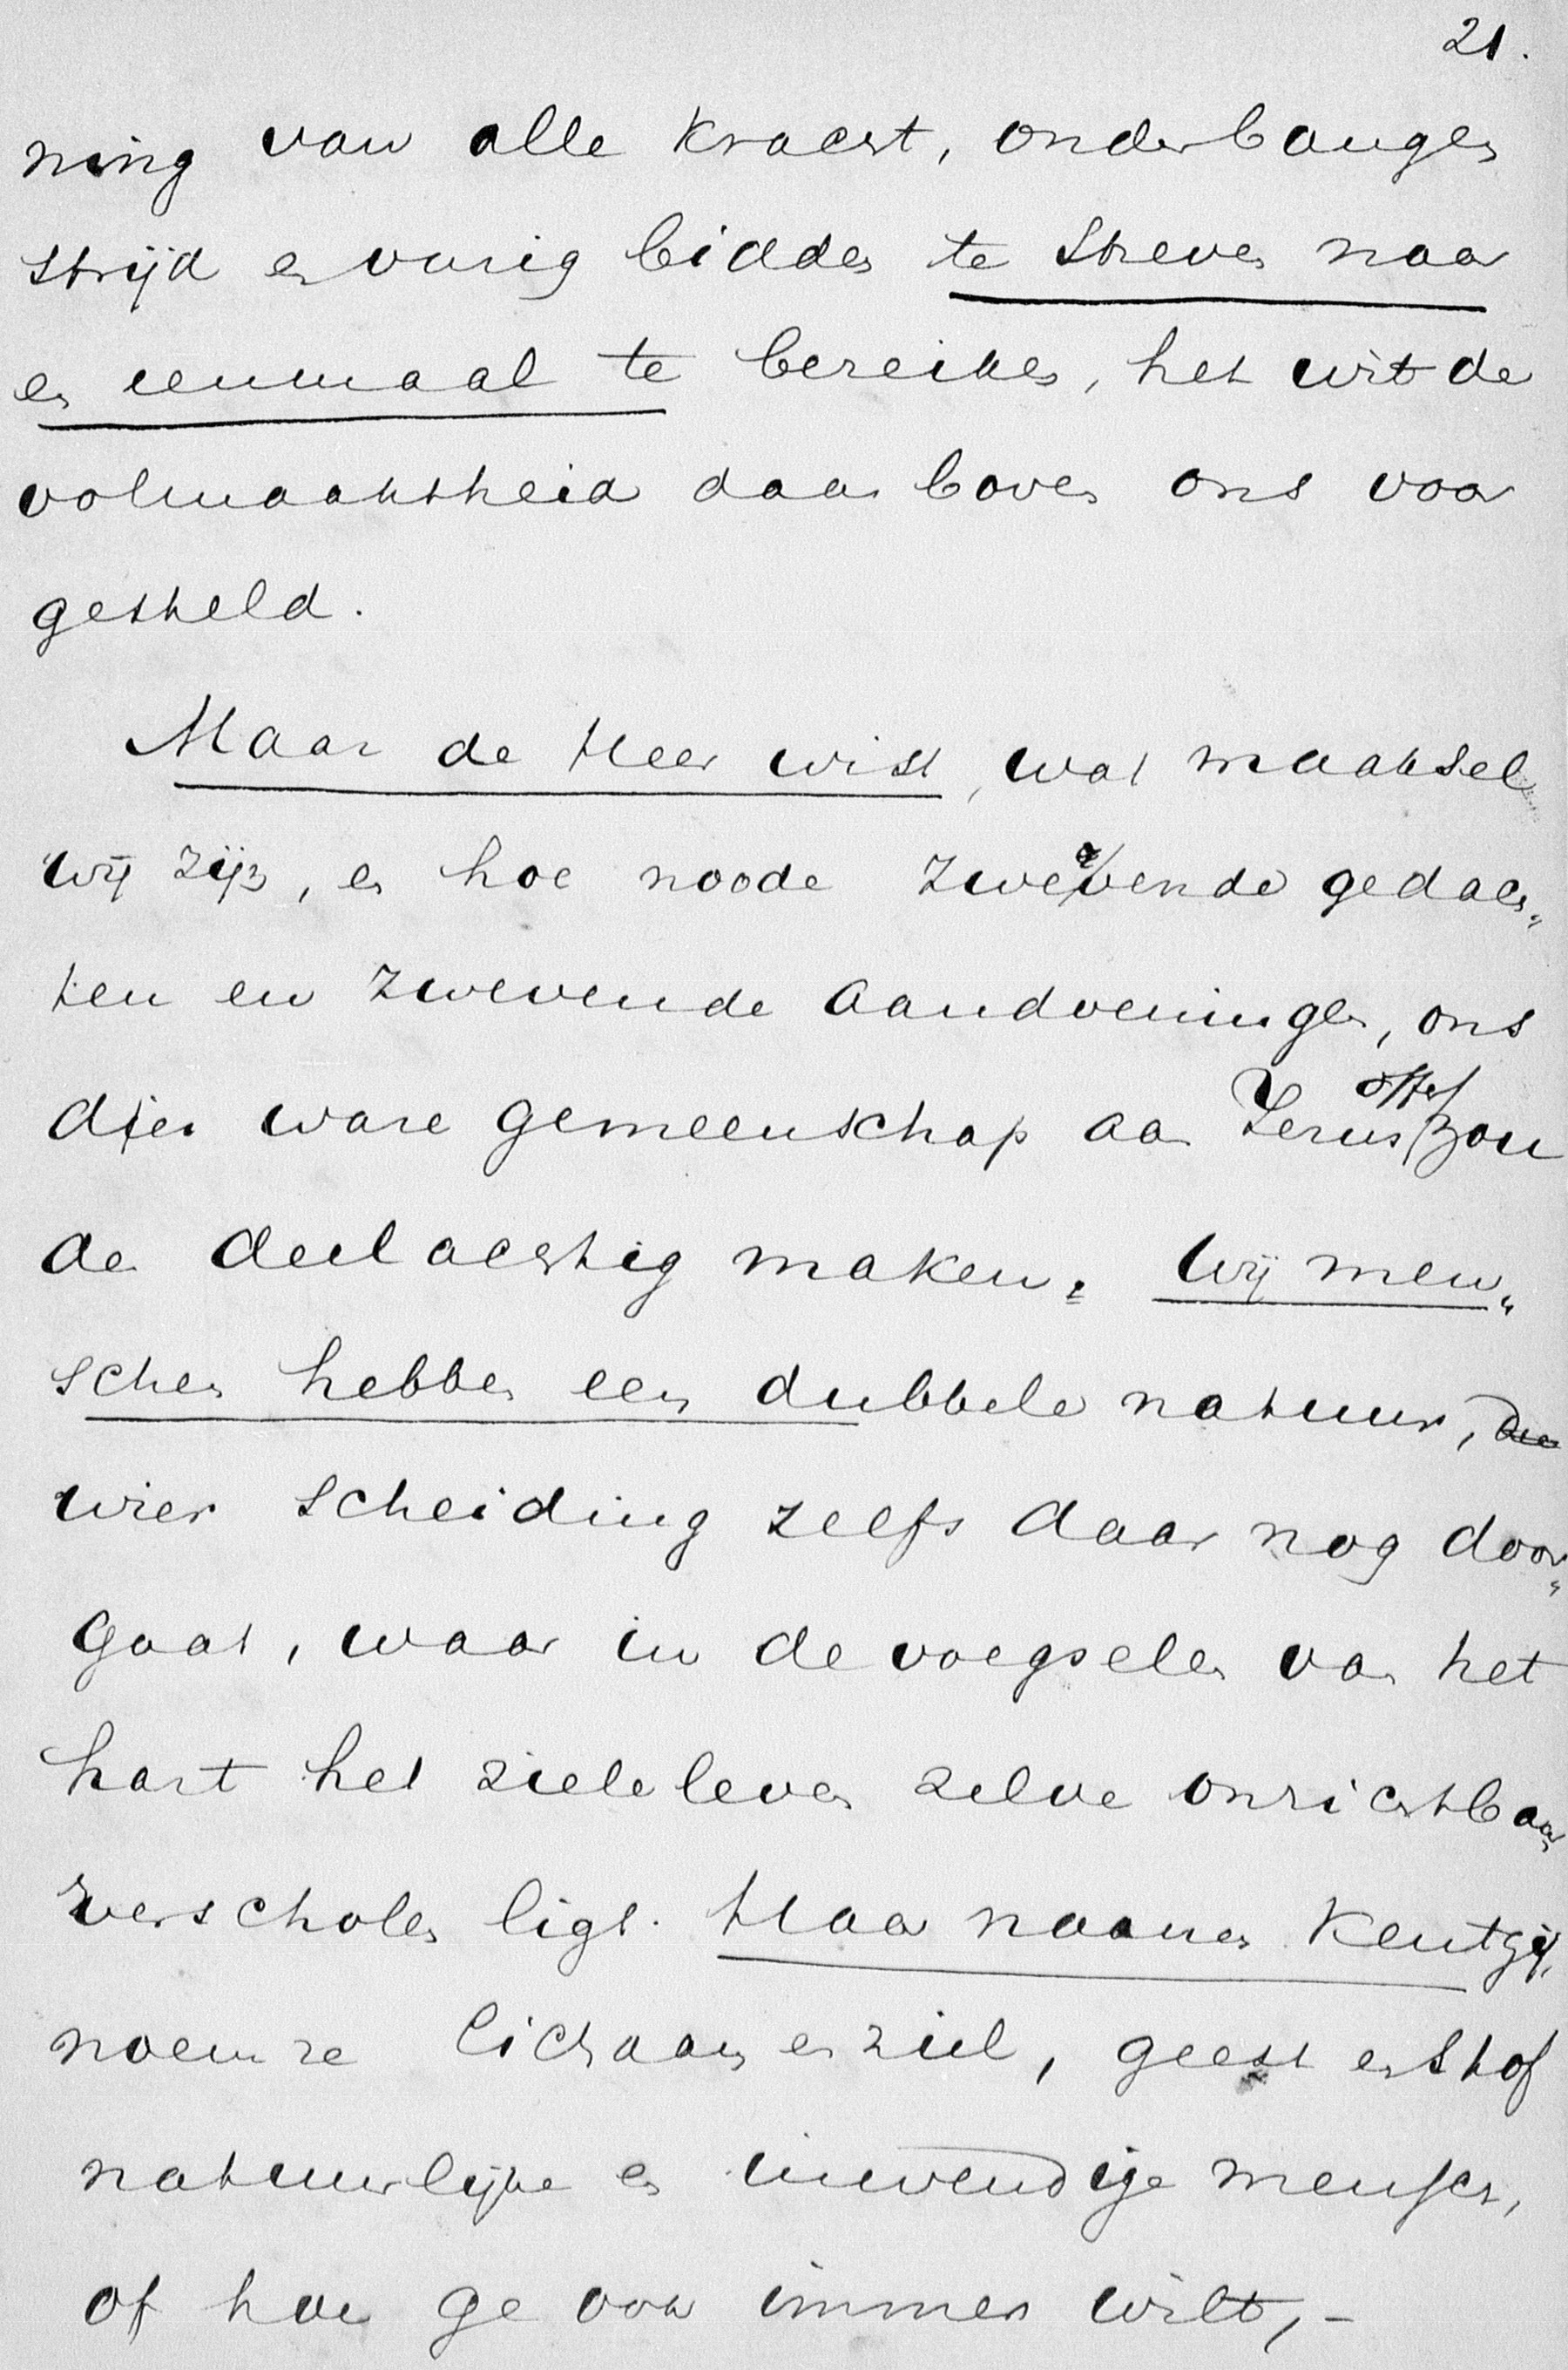 21.
ning van alle kracht, onder bangen
strijd en vurig bidden te streven naar
en eenmaal te bereiken, het uit de
volmaaktheid daar boven ons voor
gesteld.
Maar de Heer wist, wat maaksel
wij zijn, en hoe noode zwevende gedach„
ten en zwevende aandoeningen, ons
dier ware gemeenschap aan Jezus offer zou
de deelachtig maken. Wij men„
schen hebben een dubbele natuur, die
wier scheiding zelfs daar nog door„
gaat, waar in de voegselen van het
hart het zieleleven zelve onzichtbaar
verscholen ligt. Haar namen kent gij,
noem ze lichaam en ziel, geest en stof
natuurlijke en inwendige mensch,
of hoe ge ook immer wilt, -